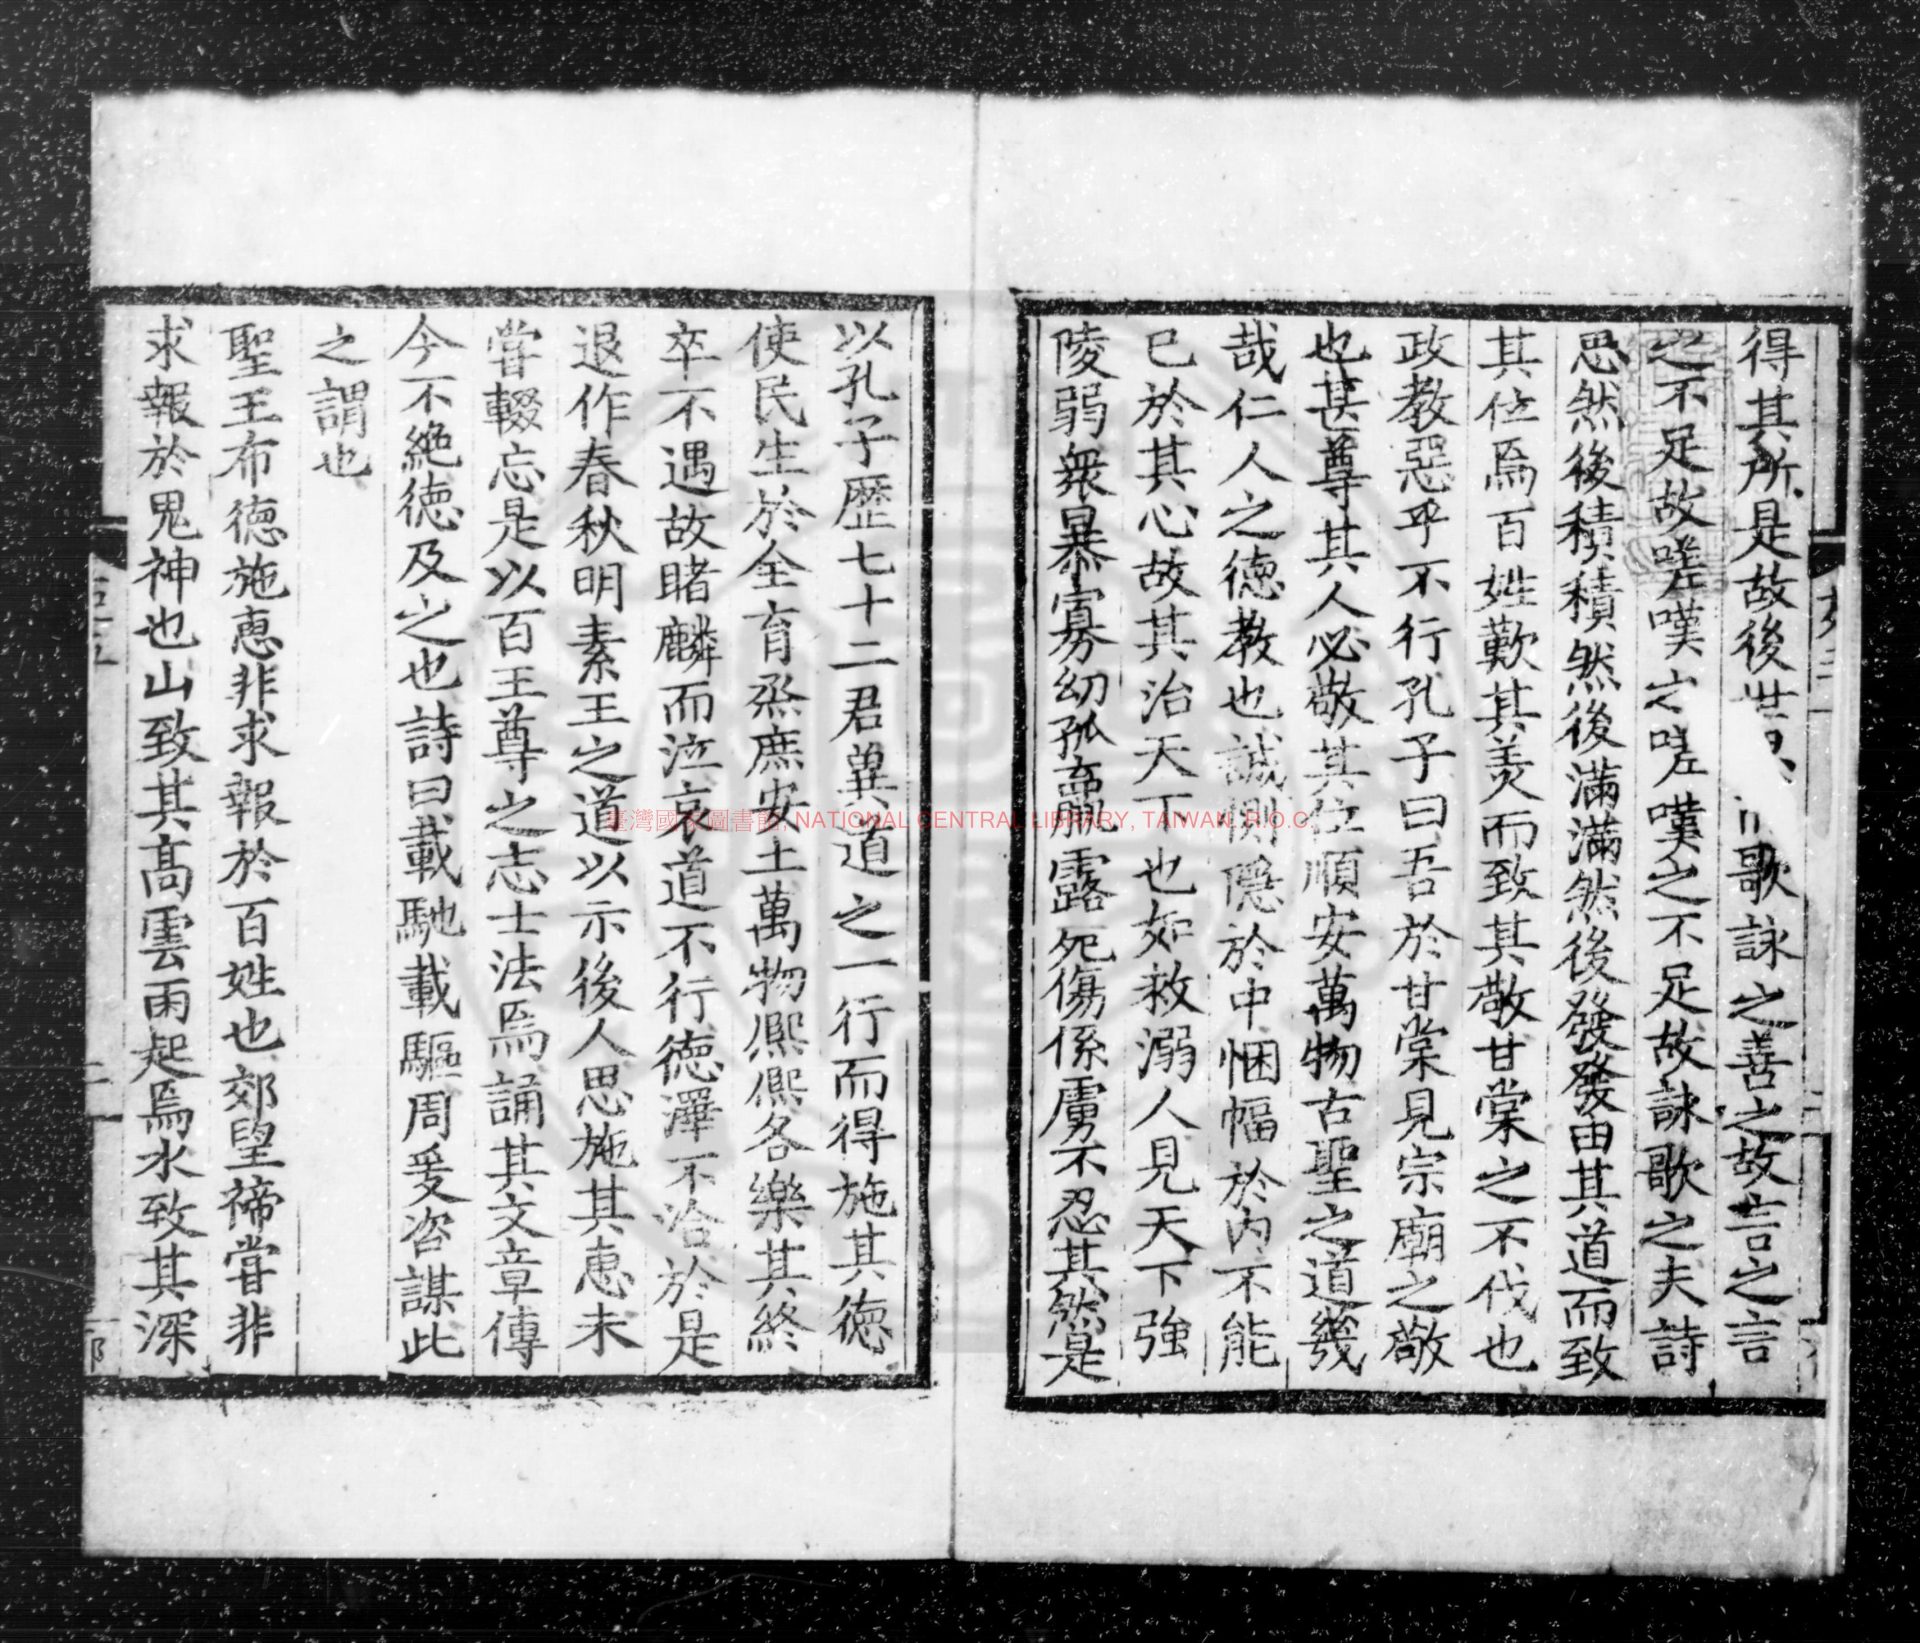 得其所是故後世
歌詠之善之故言之言
之不足故嗟嘆之嗟嘆之不足故詠歌之夫詩
思然後積積然後滿滿然後發發由其道而致
其位焉百姓歎其美而致其敬甘棠之不伐也
政教惡乎不行孔子曰吾於甘棠見宗廟之敬
也甚尊其人必敬其位順安萬物古聖之道幾
哉仁人之德教也誠惻隱於中悃幅於內不能
已於其心故其治天下也如救溺人見天下強
陵弱衆暴寡幼孤羸露死傷係虜不忍其然是
以孔子歷七十二君冀道之一行而得施其德
使民生於全育烝庶安土萬物熈熈各樂其終
卒不遇故睹麟而泣哀道不行德澤不洽於是
退作春秋明素王之道以示後人思施其惠未
甞輟忘是以百王尊之志士法焉誦其文章傳
今不絶德及之也詩曰載馳載驅周爰咨謀此
之謂也
聖王布德施惠非求報於百姓也郊望禘甞非
求報於鬼神也山致其髙雲雨起焉水致其深
臺灣國家圖書館, NATIONAL CENTRAL LIBRARY, TAIWAN, R.O.C.